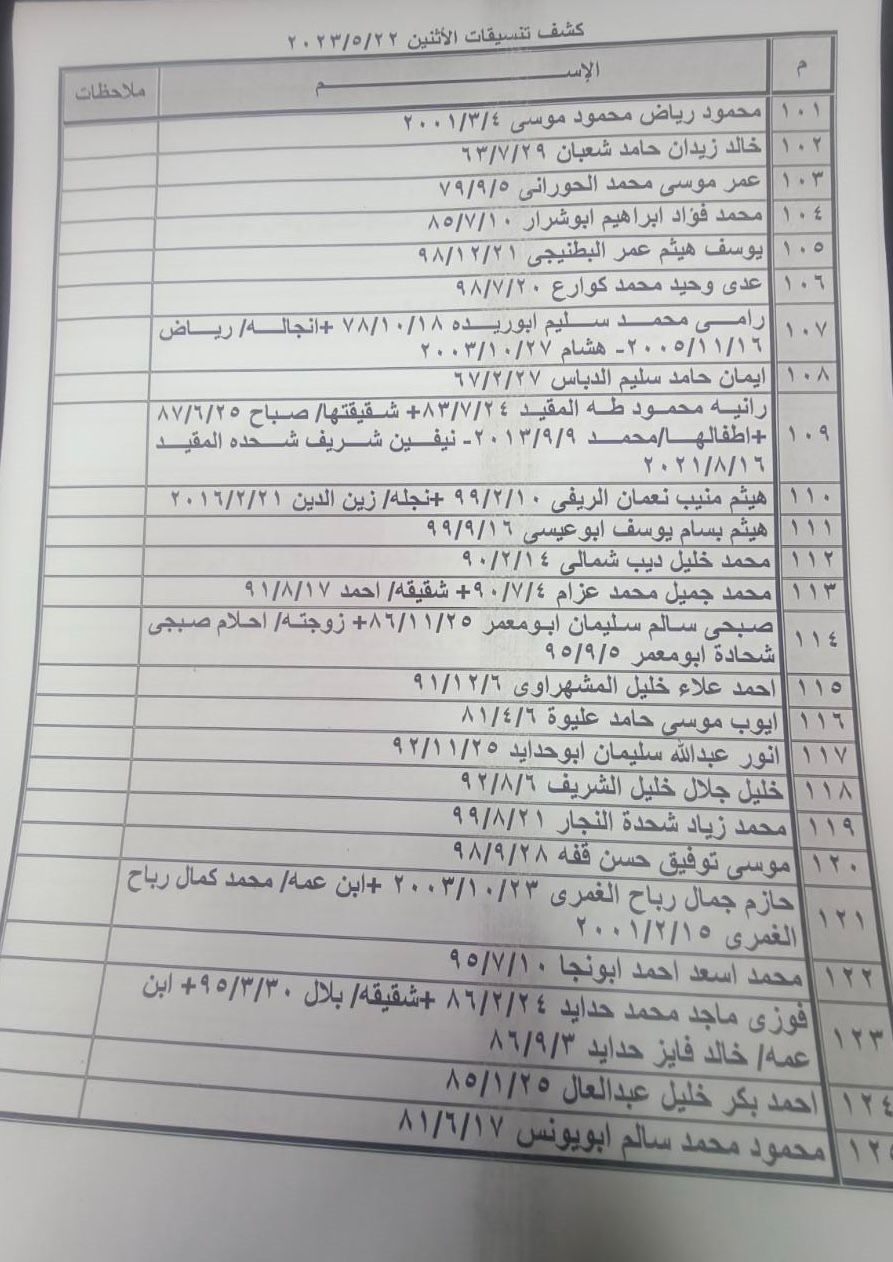 كشف تنسيقات الأثنين ٢٠٢٣/٥/٢٢
م الإســـــــــم ملاحظات
١٠١ محمود رياض محمود موسى ٢٠٠١/٣/٤
١٠٢ خالد زيدان حامد شعبان ٦٣/٧/٢٩
١٠٣ عمر موسى محمد الحورانى ٧٩/٩/٥
١٠٤ محمد فؤاد ابراهيم ابوشرار ٨٥/٧/١٠
١٠٥ يوسف هيثم عمر البطنيجى ٩٨/١٢/٢١
١٠٦ عدى وحيد محمد كوارع ٩٨/٧/٢٠
١٠٧ رامـى محمـد سـليم ابوريـده ٧٨/١٠/١٨ +انجالـه/ ريـاض
٢٠٠٥/١١/١٦- هشام ٢٠٠٣/١٠/٢٧
١٠٨ ايمان حامد سليم الدباس ٦٧/٢/٢٧
١٠٩ رانيـه محمـود طـه المقيـد ٨٣/٧/٢٤+ شـقيقتها/ صـباح ٨٧/٦/٢٥
+اطفالهـا/محمـد ٢٠١٣/٩/٩- نيفـين شـريف شـحده المقيـد
٢٠٢١/٨/١٦
١١٠ هيثم منيب نعمان الريفى ٩٩/٢/١٠ +نجله/ زين الدين ٢٠١٦/٢/٢١
١١١ هيثم بسام يوسف ابوعيسى ٩٩/٩/١٦
١١٢ محمد خليل ديب شمالى ٩٠/٢/١٤
١١٣ محمد جميل محمد عزام ٩٠/٧/٤+ شقيقه/ احمد ٩١/٨/١٧
١١٤ صبحى سالم سليمان ابومعمر ٨٦/١١/٢٥+ زوجتـه/ احلام صبحى
شحادة ابومعمر ٩٥/٩/٥
١١٥ احمد علاء خليل المشهراوى ٩١/١٢/٦
١١٦ ايوب موسى حامد عليوة ٨١/٤/٦
١١٧ انور عبدالله سليمان ابوحدايد ٩٢/١١/٢٥
١١٨ خليل جلال خليل الشريف ٩٢/٨/٦
١١٩ محمد زياد شحدة النجار ٩٩/٨/٢١
١٢٠ موسى توفيق حسن قفه ٩٨/٩/٢٨
١٢١ حازم جمال رباح الغمرى ٢٠٠٣/١٠/٢٣ +ابن عمه/ محمد كمال رباح
الغمرى ٢٠٠١/٢/١٥
١٢٢ محمد اسعد احمد ابونجا ٩٥/٧/١٠
١٢٣ فوزى ماجد محمد حدايد ٨٦/٢/٢٤ +شقيقه/ بلال ٩٥/٣/٣٠+ ابن
عمه/ خالد فايز حدايد ٨٦/٩/٣
١٢٤ احمد بكر خليل عبدالعال ٨٥/١/٢٥
١٢٥ محمود محمد سالم ابويونس ٨١/٦/١٧